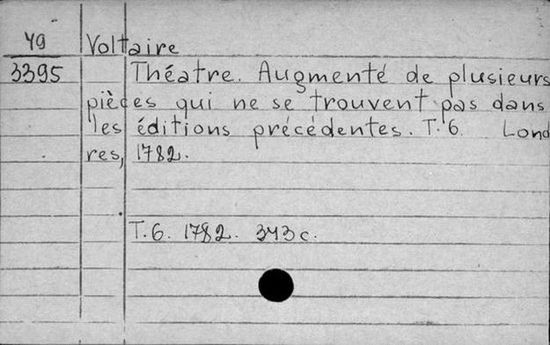 49 Voltaire
3395 Théatre. Augmenté de plusieurs
pièces qui ne se trouvent pas dans
les éditions précédentes. T. 6 Lond
res, 1782.
T. 6. 1782. 343 c.